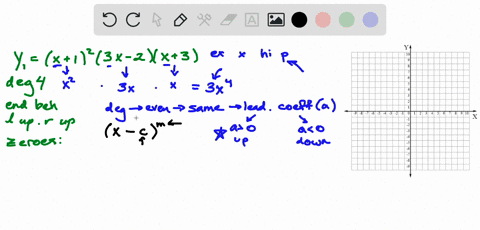 Y₁ = (x+1)²(3x-2)(x+3) ex x hi p
deg 4 x² · 3x · x = 3x⁴
end beh deg → even → same → lead. coeff (a)
l up. r up (x - c)ᵐ ← ☆ a>0 a<0
up down
zeroes:
Y
X